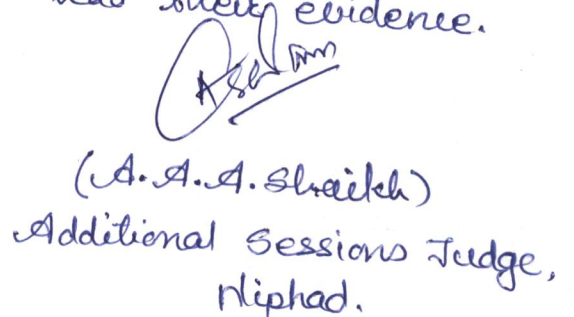 evidence.
(A. A. A. Shaikh)
Additional Sessions Judge,
Niphad.